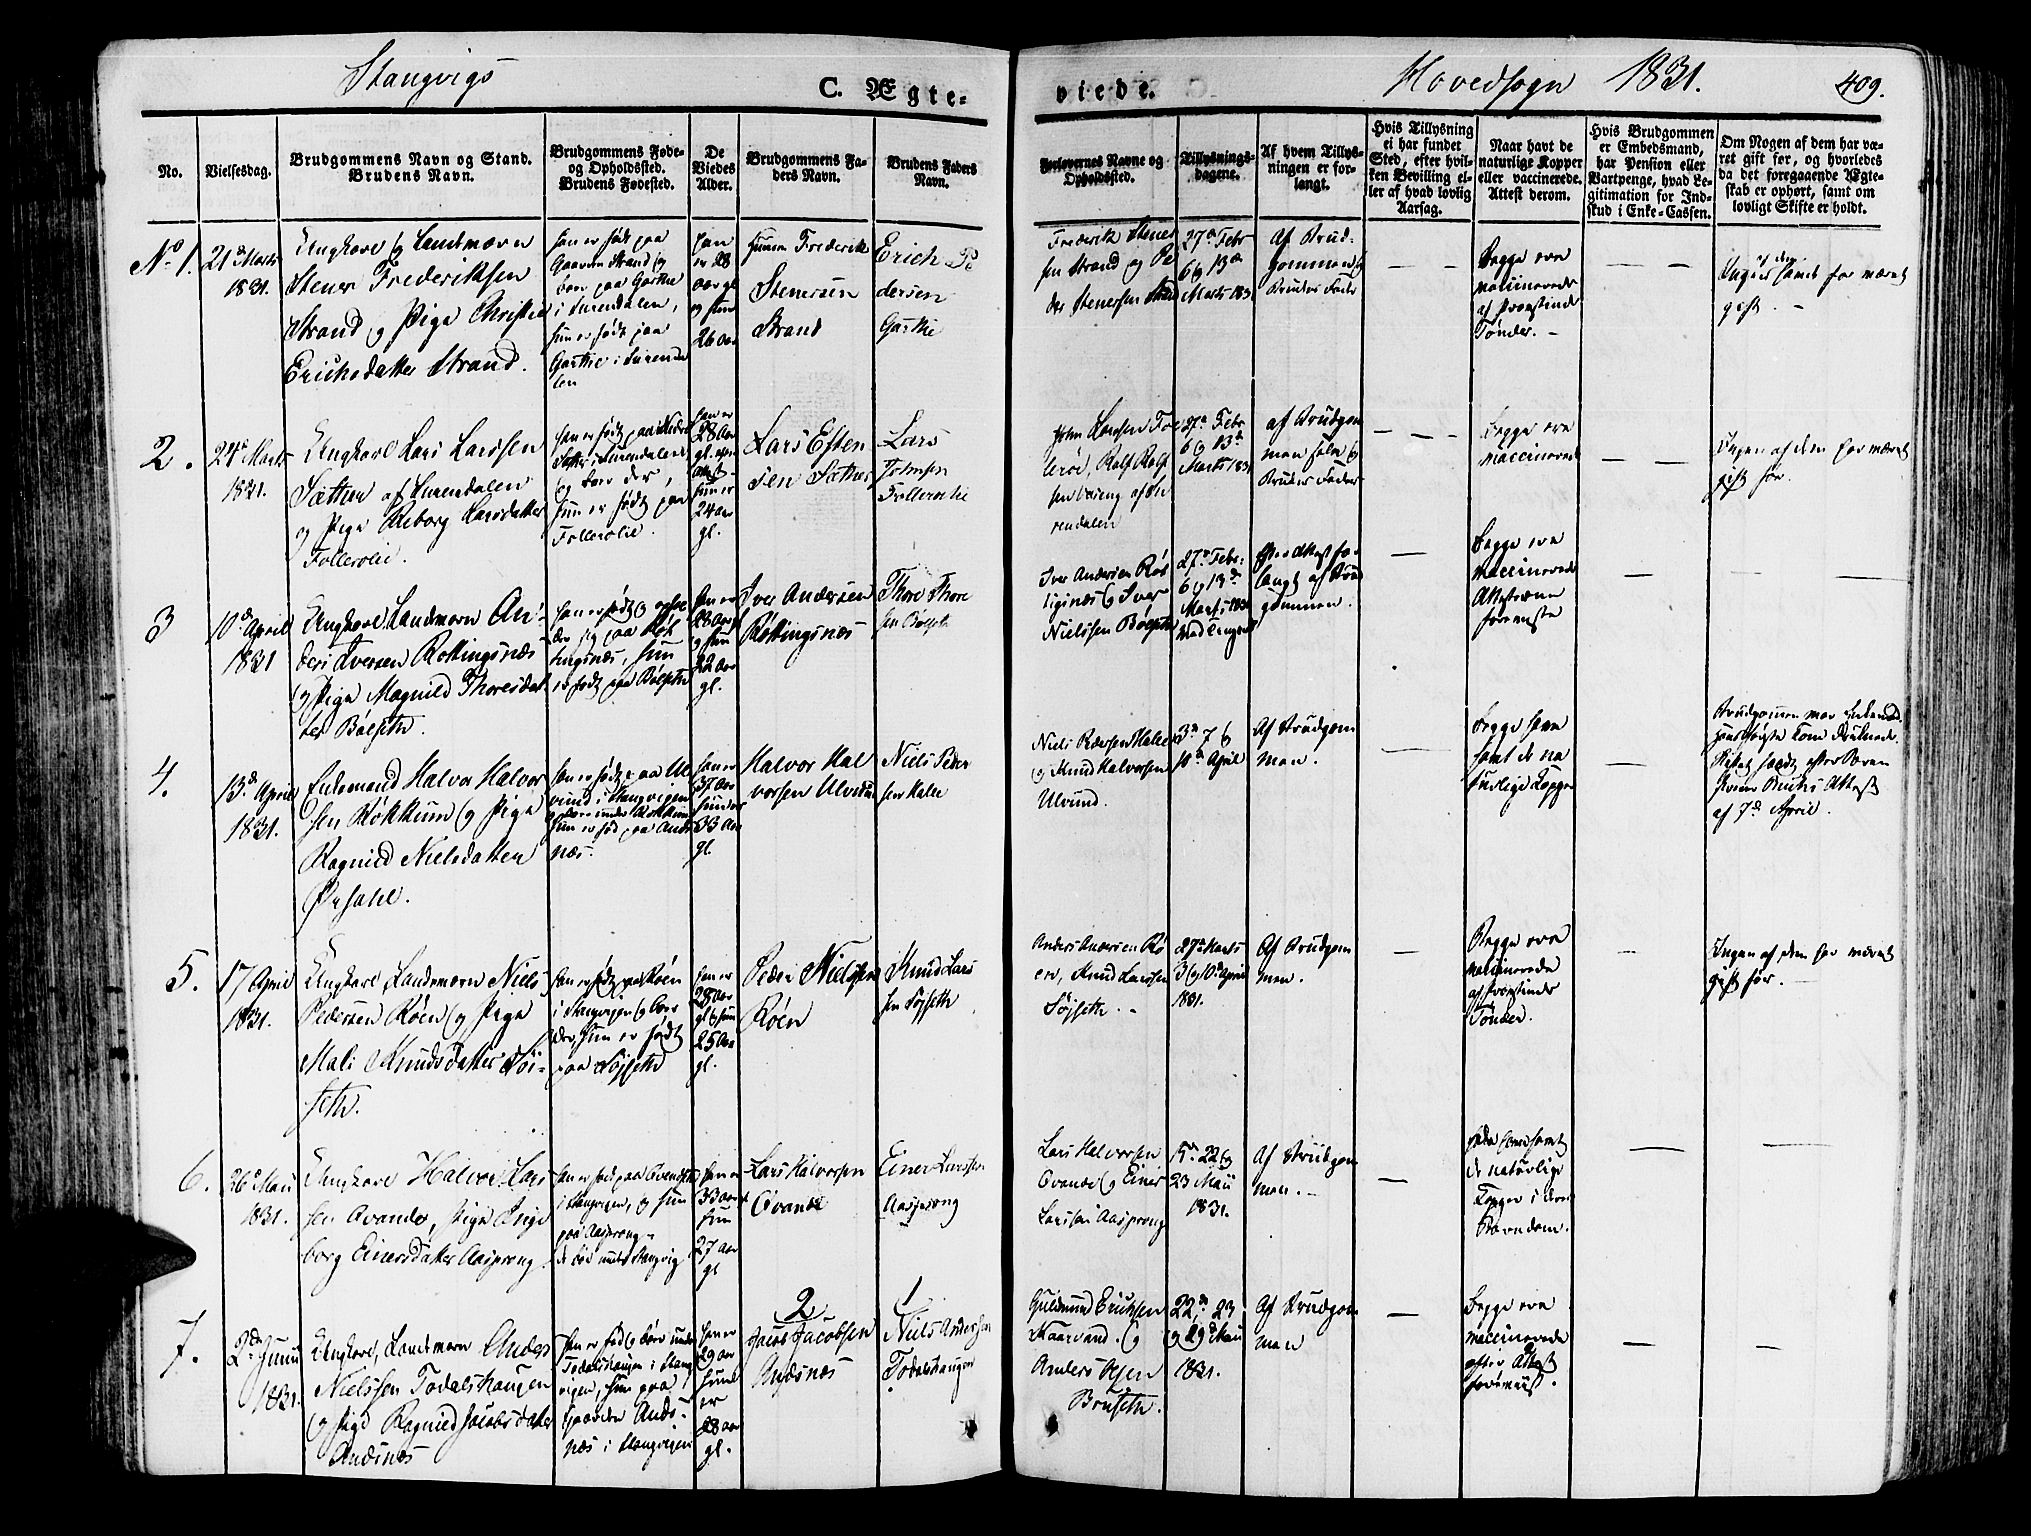 Stangvigs
C. Ægte-
viede.
Hovedsogn 1831.
409.
No.
Vielsesdag.
Brudgommens Navn og Stand.
Brudens Navn.
Brudgommens Føde-
og Opholdssted.
Brudens Fødested.
De
Viedes
Alder.
Brudgommens Fa-
ders Navn.
Brudens Faders
Navn.
Forlovernes Navne og
Opholdssted.
Tillysnings-
dagene.
Af hvem Tillys-
ningen er for-
langt.
Hvis Tillysning
ei har fundet
Sted, efter hvil-
ken Bevilling el-
ler af hvad lovlig
Aarsag.
Naar havt de
naturlige Kopper
eller vaccinerede.
Attest derom.
Hvis Brudgommen
er Embedsmand,
har Pension eller
Vartpenge, hvad Le-
gitimation for Ind-
skud i Enke-Cassen.
Om Nogen af dem har væ-
ret gift før, og hvorledes
da det foregaaende Ægte-
skab er ophørt, samt om
lovligt Skifte er holdt.
No 1.
21de Marts
1831.
Ungkarl og Landmærn
Stener Frederiksen
Strand og Pige Christie
Erichsdatter Strand.
han er født paa
Gaarden Strand og
boer paa Garthe
i Surendalen,
hun er født paa
Garthe i Surenda
len
han
er 28
aar gl
og hun
26 aar
Frederik
Stenersen
Strand
Erich Pe
dersen
Garthe
Frederik Stener
sen Strand og Pe
der Stenersen Strand
27de Febr
6 og 13de
Marts 1831
Af Brud-
gommen og
Brudens Fader
— —
Begge ere
vaccinerede
af Provstinde
Tønder. —
— —
Ingen af dem har været
gift. —
2.
24de Marts
1831.
Ungkarl Lars Larssen
Sæther af Surendalen
og Pige Reborg Larsdatter
Follerolie.
han er født paa Nedre
Sæther i Surendalen
og boer der,
hun er født paa
Follerolie.
han er
28 Aar
gl.
hun er
24 aar
gl.
Lars Esten
sen Sæther
Lars
Johnsen
Follerolie
John Larssen Fol
lerøi, Rolf Rolf
sen af Su
rendalen
27de Febr
6 og 13de
Marts 1831
af Brudgom
men selv og
Brudens Fader
— — —
Begge ere
vaccinerede
— —
Ingen af dem har været
gift før.
3
10de April
1831
Ungkarl Landmærn An-
ders Iversen Røttingsnæs
og Pige Magnild Thoresdat
ter Bølseth.
han er født og ophol
der sig paa Røt
tingsnæs, hun
er født paa Bølseth
han er
28 Aar gl
og hun
22 aar
gl.
Iver Andersen
Røttingsnæs
Thore Thore
sen Bølseth
Iver Andersen Røt
tingnæs og Iver
Nielssen Bølseth
27de Febr.
6 og 13de
Marts 1831
af Brud
gommen.
—
Begge ere
vaccinerede
Attesterne
foreviste
—
—
4.
13de April
1831.
Enkemand Halvor Halvor
sen Røkkum og Pige
Ragnild Nielsdatter
Ørsahl.
han er født paa Ul
vund i Stangvigen
og boer under Røkkum
hun er fød paa Ands
næs.
han er
37 Aar
hun er
33 Aar
gl.
Halvor Hal
vorsen Ulvund
Niels Peder
sen Halee
Niels Pedersen Halee
og Knud Halvorsen
Ulvund.
3de 7 og
10de April
Af Brudgom
men.
—
Begge have
havt de na
turlige Kopper
—
Brudgommen var Enkemand
Skiftet holdt efter
Attest
af 7de April.
5.
17 April
1831.
Ungkarl Landmærn Niels
Pedersen Røen og Pige
Mali Knudsdatter Søi-
seth.
han er født paa Røen
i Stangvigen og boer
der, hun er født
paa Søjseth
han er
28 Aar
gl og hun
25 Aar
gl.
Peder Nielssen
Røen
Knud Lars
sen Søjseth
Anders Andersen Rø
en, Knud Larssen
Søjseth. —
27de Marts
3 og 10de April
1831.
Af Brudgom
men.
—
Begge ere
vaccinerede
af Provstinde
Tønder.
—
Ingen af dem har været
gift før. —
6.
26de Maii
1831.
Ungkarl Halvor Lars
sen Qvande, Pige Inge
borg Einersdatter Aasprong
han er født paa Qvande
i Stangvigen, og hun
paa Aasprong —
de boe under Stangvig
han er
33 aar
hun
27 aar
gl
Lars Halvorsen
Qvande
Einer Larssen
Aasprong
Lars Halvorsen
Qvande og Einer
Larssen Aasprong
15de 22 og
23 Maii
1831.
Af Brudgom
men. —
—
have havt
de naturlige
Kopper i deres
Barndom.
—
—
7.
2de Junii
1831.
Ungkarl, Landmærn Anders
Nielssen Todalshaugen
og Pige Ragnild Jacobsdatter
Andsnæs
han er fød og boer under
Todalshaugen i Stang
vigen, hun paa
Gaarden Ands-
næs i Stangvigen
han er
29 aar
hun
er
28 aar
gl.
2
Jacob Jacobsen
Andsnæs
1
Niels Andersen
Todalshaugen
Guldmund Erichsen
Kaarvand og
Anders Olsen
Bruseth.
22de, 23
og 29de Maii
1831.
Af Brudgom
men
—
Begge ere
vaccinerede
efter Attest
forevist.
—
—